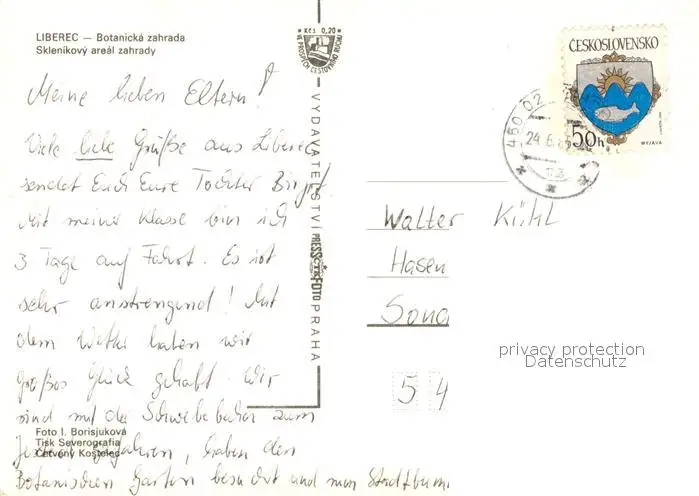 LIBEREC — Botanická zahrada
Skleníkový areál zahrady
Kčs 0,20
VE PROSPĚCH CESTOVNÍHO RUCHU
ČESKOSLOVENSKO
50h
MYJAVA
460 02
24.6.
Meine lieben Eltern!
Viele liebe Grüße aus Liberec
sendet Euch Eure Tochter Birgit.
Mit meiner Klasse bin ich
3 Tage auf Fahrt. Es ist
sehr anstrengend! Mit
dem Wetter haben wir
großes Glück gehabt. Wir
sind mit der Schwebebahn zum
gefahren, haben den
Botanischen Garten besucht und nun Stadtbum
VYDAVATELSTVÍ PRESSFOTO PRAHA
Walter Kühl
Hasen
Sona
54
privacy protection
Datenschutz
Foto I. Borisjuková
Tisk Severografia
Červený Kostelec